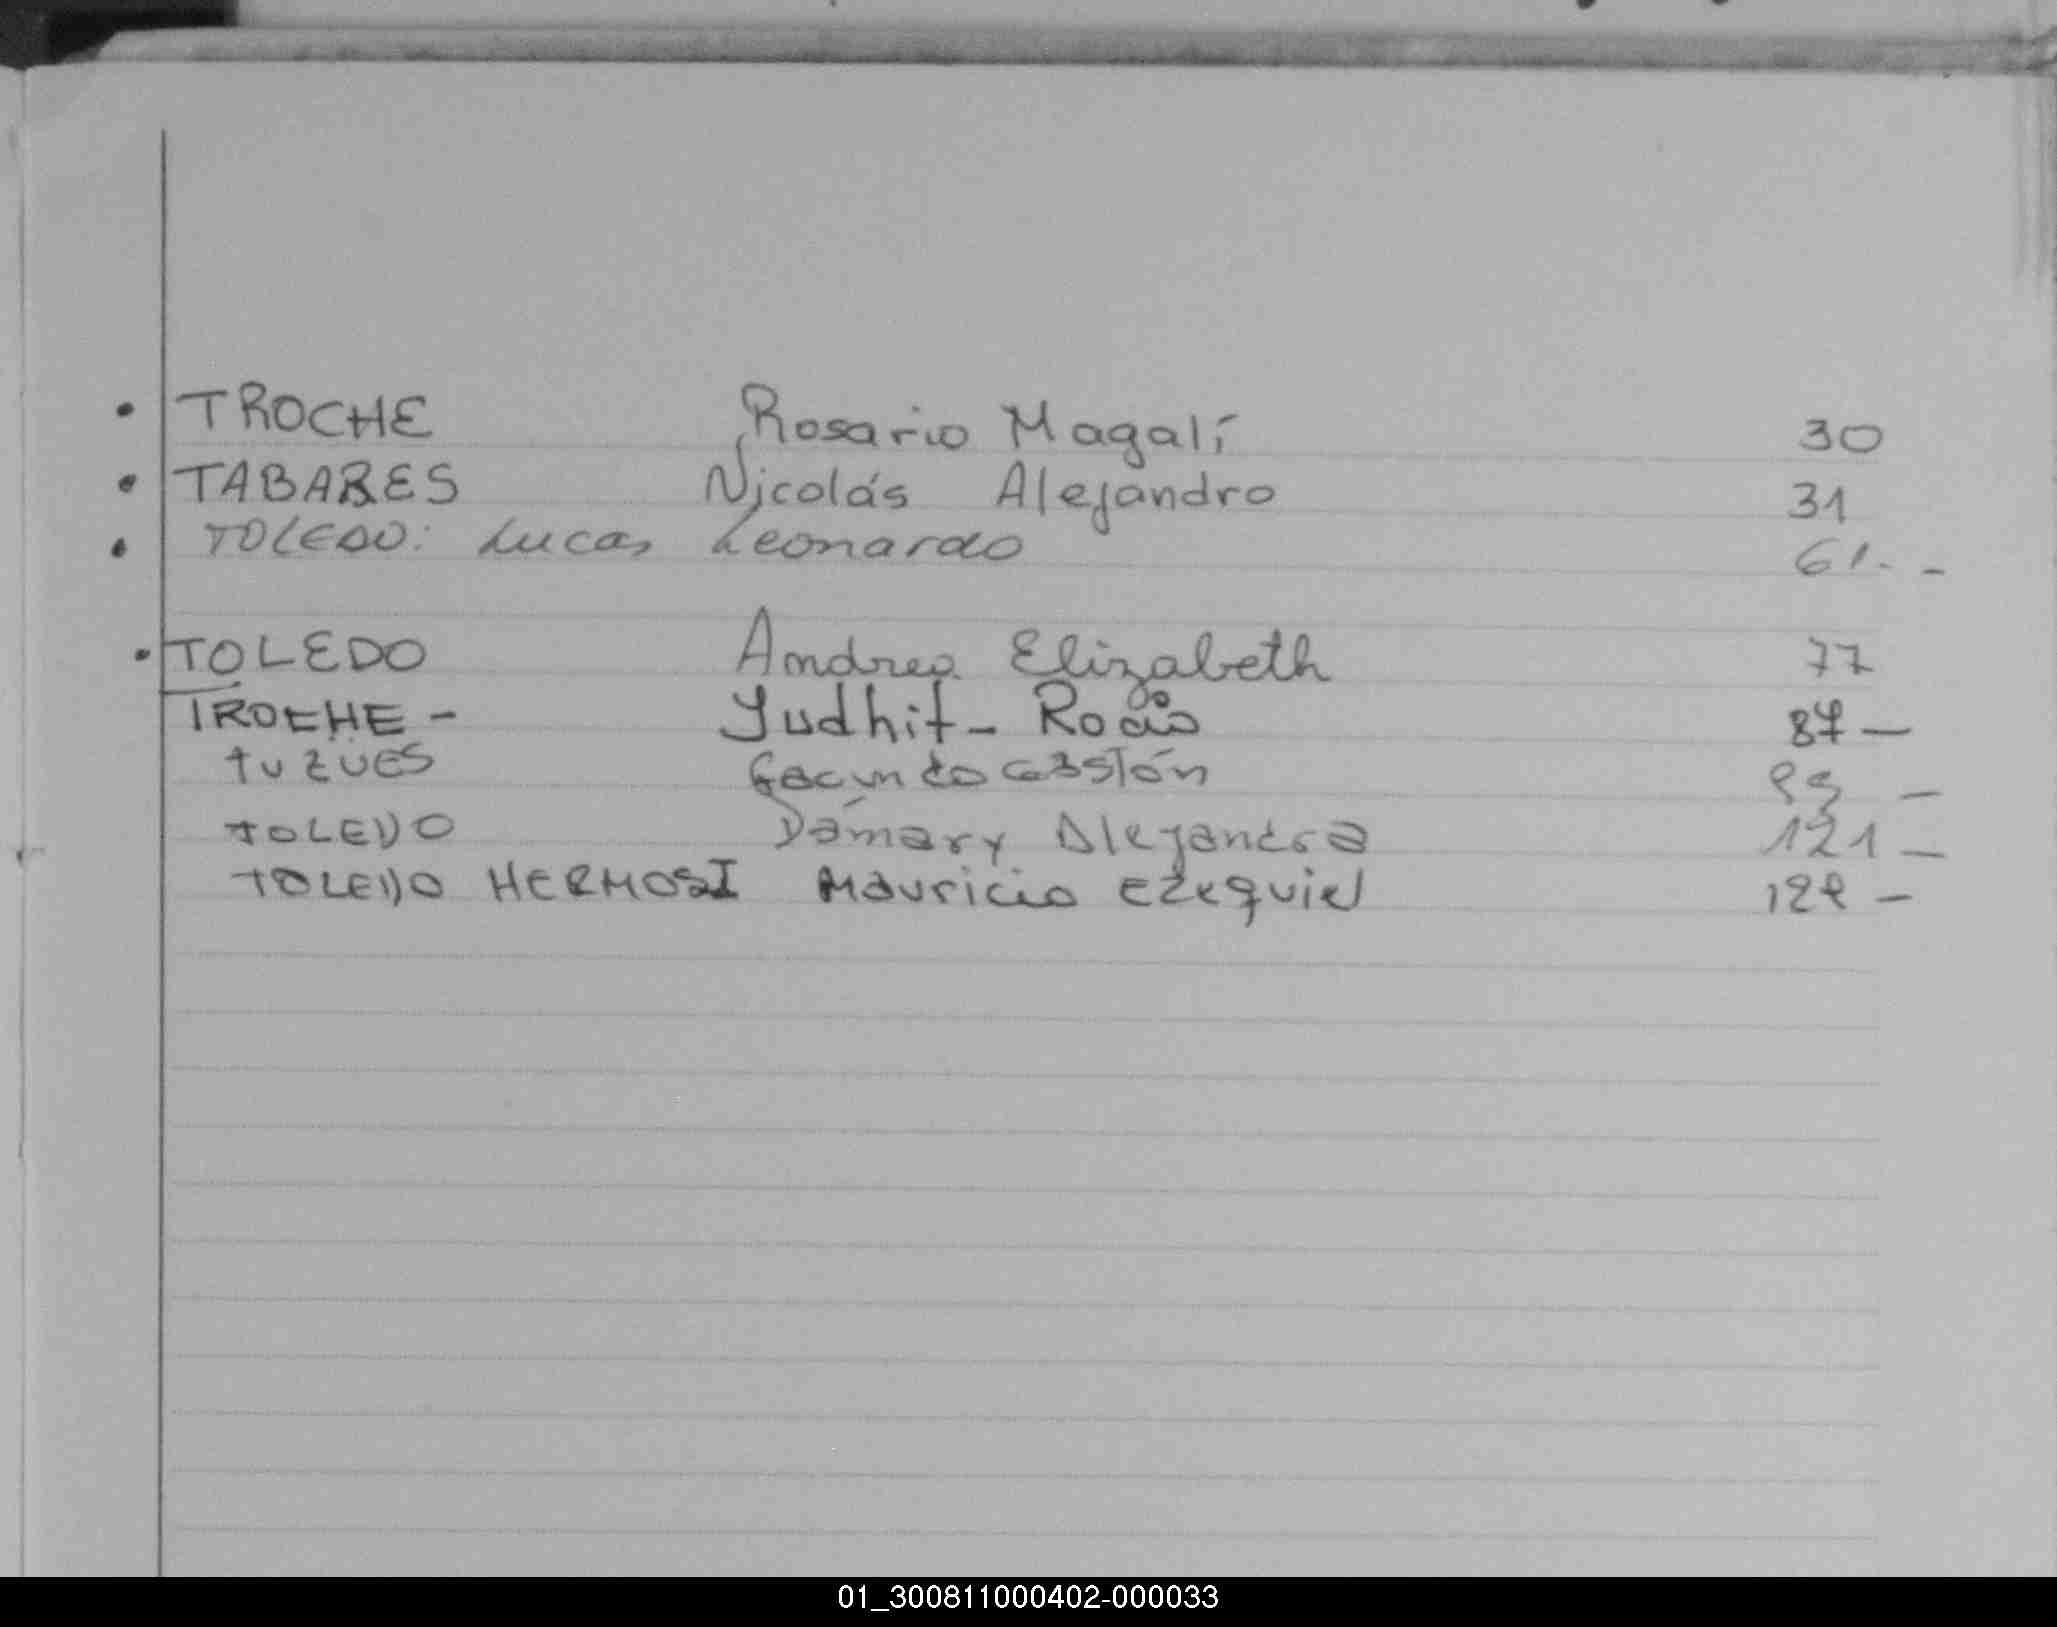 • TROCHE Rosario Magalí 30
• TABARES Nicolás Alejandro 31
• TOLEDO: Lucas Leonardo 61.-
• TOLEDO Andrea Elizabeth 77
TROCHE - Yudhit - Rocío 87 -
TUZUES Facundo Gastón -
TOLEDO Dámary Alejandra 121 -
TOLEDO HERMOSI Mauricio Ezequiel -
01_300811000402-000033